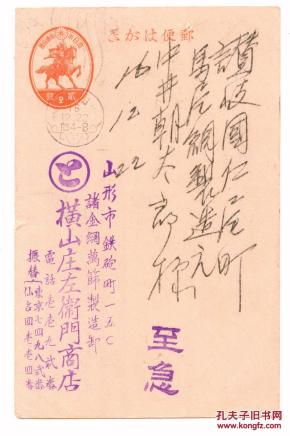 郵便はがき
讃岐国仁尾町
馬尾網製造元
中井朝太郎様
16.12.22
至急
山形市鉄砲町一五〇
諸金網萬篩製造卸
横山庄左衛門商店
電話壱壱九弐番
振替
東京七四九八弐番
仙台四壱壱四番
孔夫子旧书网
www.kongfz.com